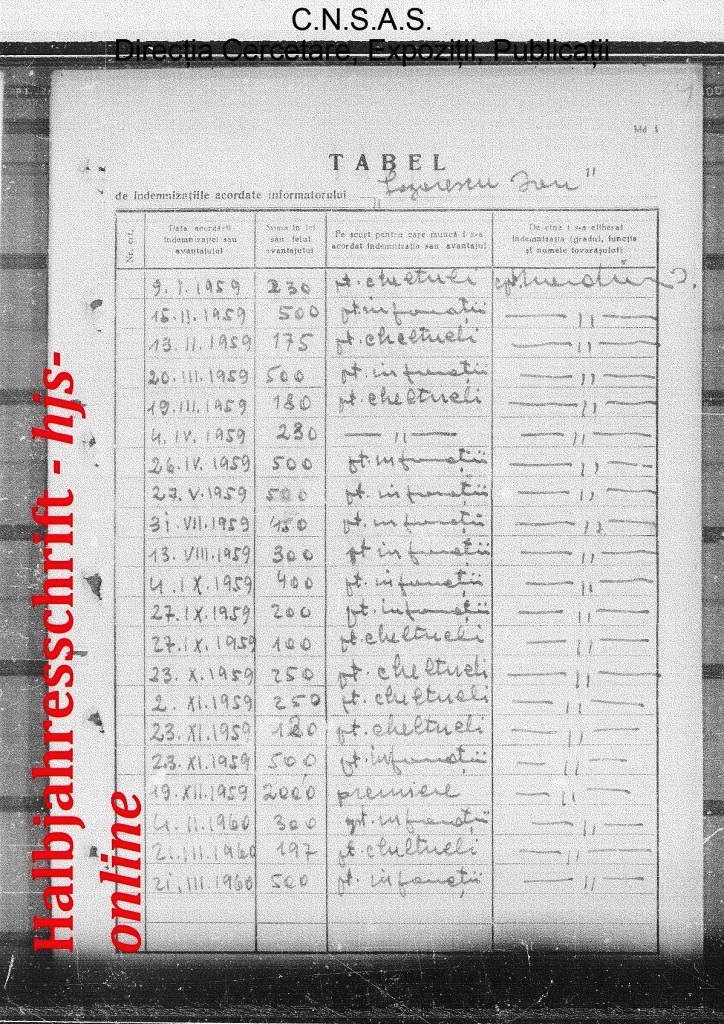 C.N.S.A.S.
Direcția Cercetare, Expoziții, Publicații
TABEL
de indemnizațiile acordate informatorului "Lazarescu Ion"
Nr. crt. Data acordării indemnizației sau avantajului Suma în lei sau felul avantajului Pe scurt pentru care muncă i s-a acordat indemnizația sau avantajul De cine i s-a eliberat indemnizația (gradul, funcția și numele tovarășului)
9. I. 1959 230 pt. cheltueli
15. II. 1959 500 pt. informații — " —
13. II. 1959 175 pt. cheltueli — " —
20. III. 1959 500 pt. informații — " —
19. III. 1959 180 pt. cheltueli — " —
4. IV. 1959 230 — " — — " —
26. IV. 1959 500 pt. informații — " —
27. V. 1959 500 pt. informații — " —
31. VII. 1959 450 pt. informații — " —
13. VIII. 1959 300 pt. informații — " —
4. IX. 1959 400 pt. informații — " —
27. IX. 1959 200 pt. informații — " —
27. IX. 1959 100 pt. cheltueli — " —
23. X. 1959 250 pt. cheltueli — " —
2. XI. 1959 250 pt. cheltueli — " —
23. XI. 1959 120 pt. cheltueli — " —
23. XI. 1959 500 pt. informații — " —
19. XII. 1959 2000 premiere — " —
4. II. 1960 300 pt. informații — " —
21. III. 1960 197 pt. cheltueli — " —
21. III. 1960 500 pt. informații — " —
Halbjahresschrift - hjs-
online